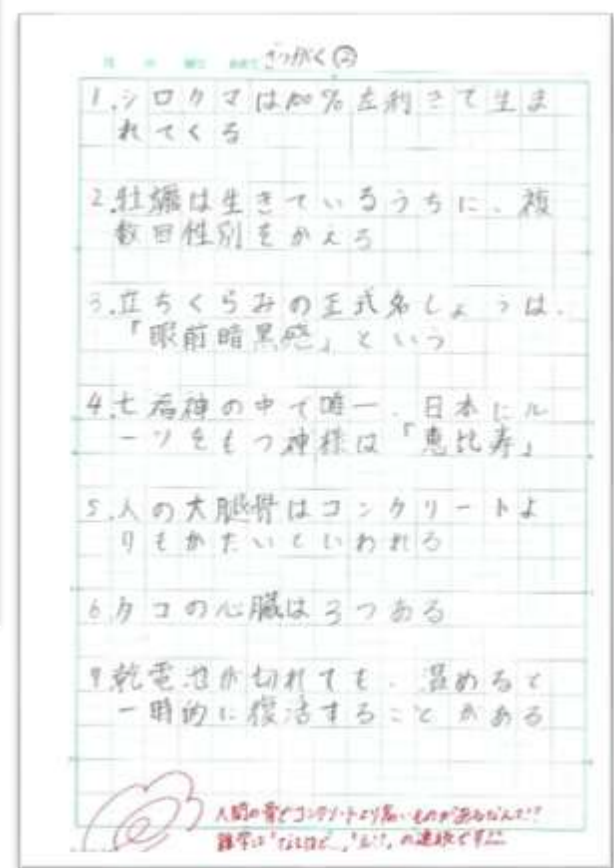 ざつがく②
1.シロクマは100%左利きで生ま
れてくる
2.牡蠣は生きているうちに、複
数回性別をかえる
3.立ちくらみの正式名しょうは、
「眼前暗黒感」という
4.七福神の中で唯一、日本にル
ーツをもつ神様は「恵比寿」
5.人の大腿骨はコンクリートよ
りもかたいといわれる
6.タコの心臓は3つある
7.乾電池が切れても、温めると
一時的に復活することがある
人間の骨でコンクリートより硬いものがあるなんて!?
雑学は"なるほど"、"え!?"の連続です!!